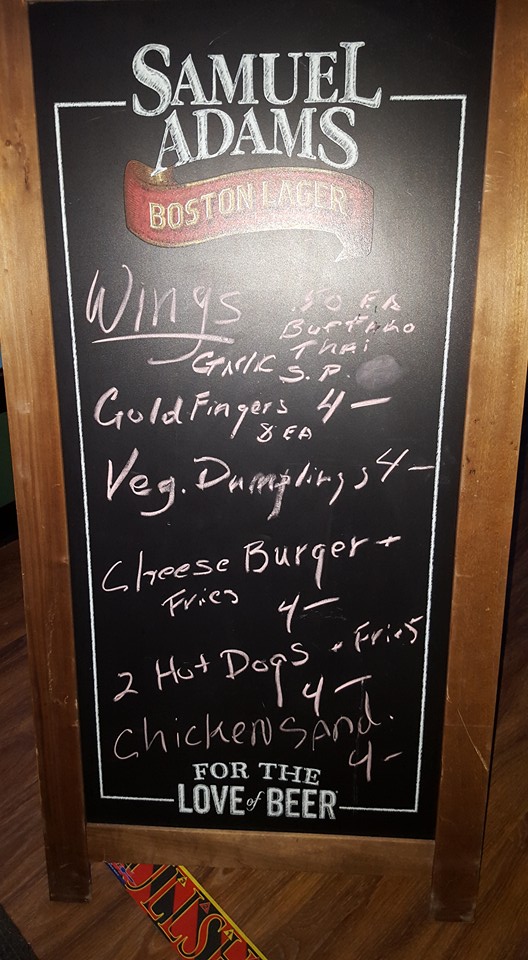 SAMUEL
ADAMS
BOSTON LAGER
Wings .50 EA
Buffalo
Thai
Garlic S.P.
Gold Fingers 4 —
8 EA
Veg. Dumplings 4 —
Cheese Burger +
Fries 4 —
2 Hot Dogs + Fries
4 —
Chicken Sand.
4 -
FOR THE
LOVE of BEER